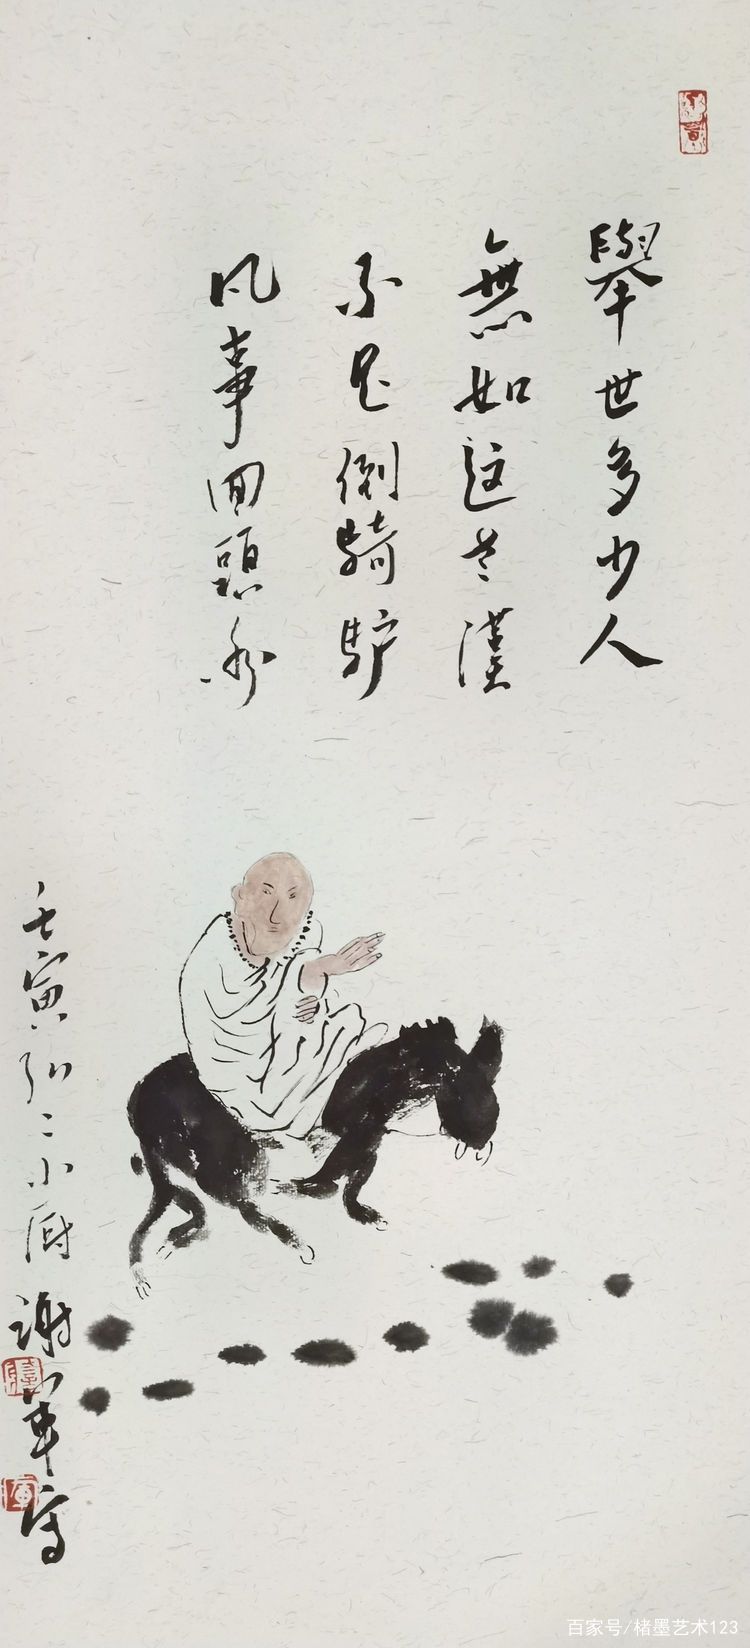 舉世多少人
無如这老漢
不是倒騎馿
凡事回頭看
壬寅 二小 谢军写
百家号/楮墨艺术123